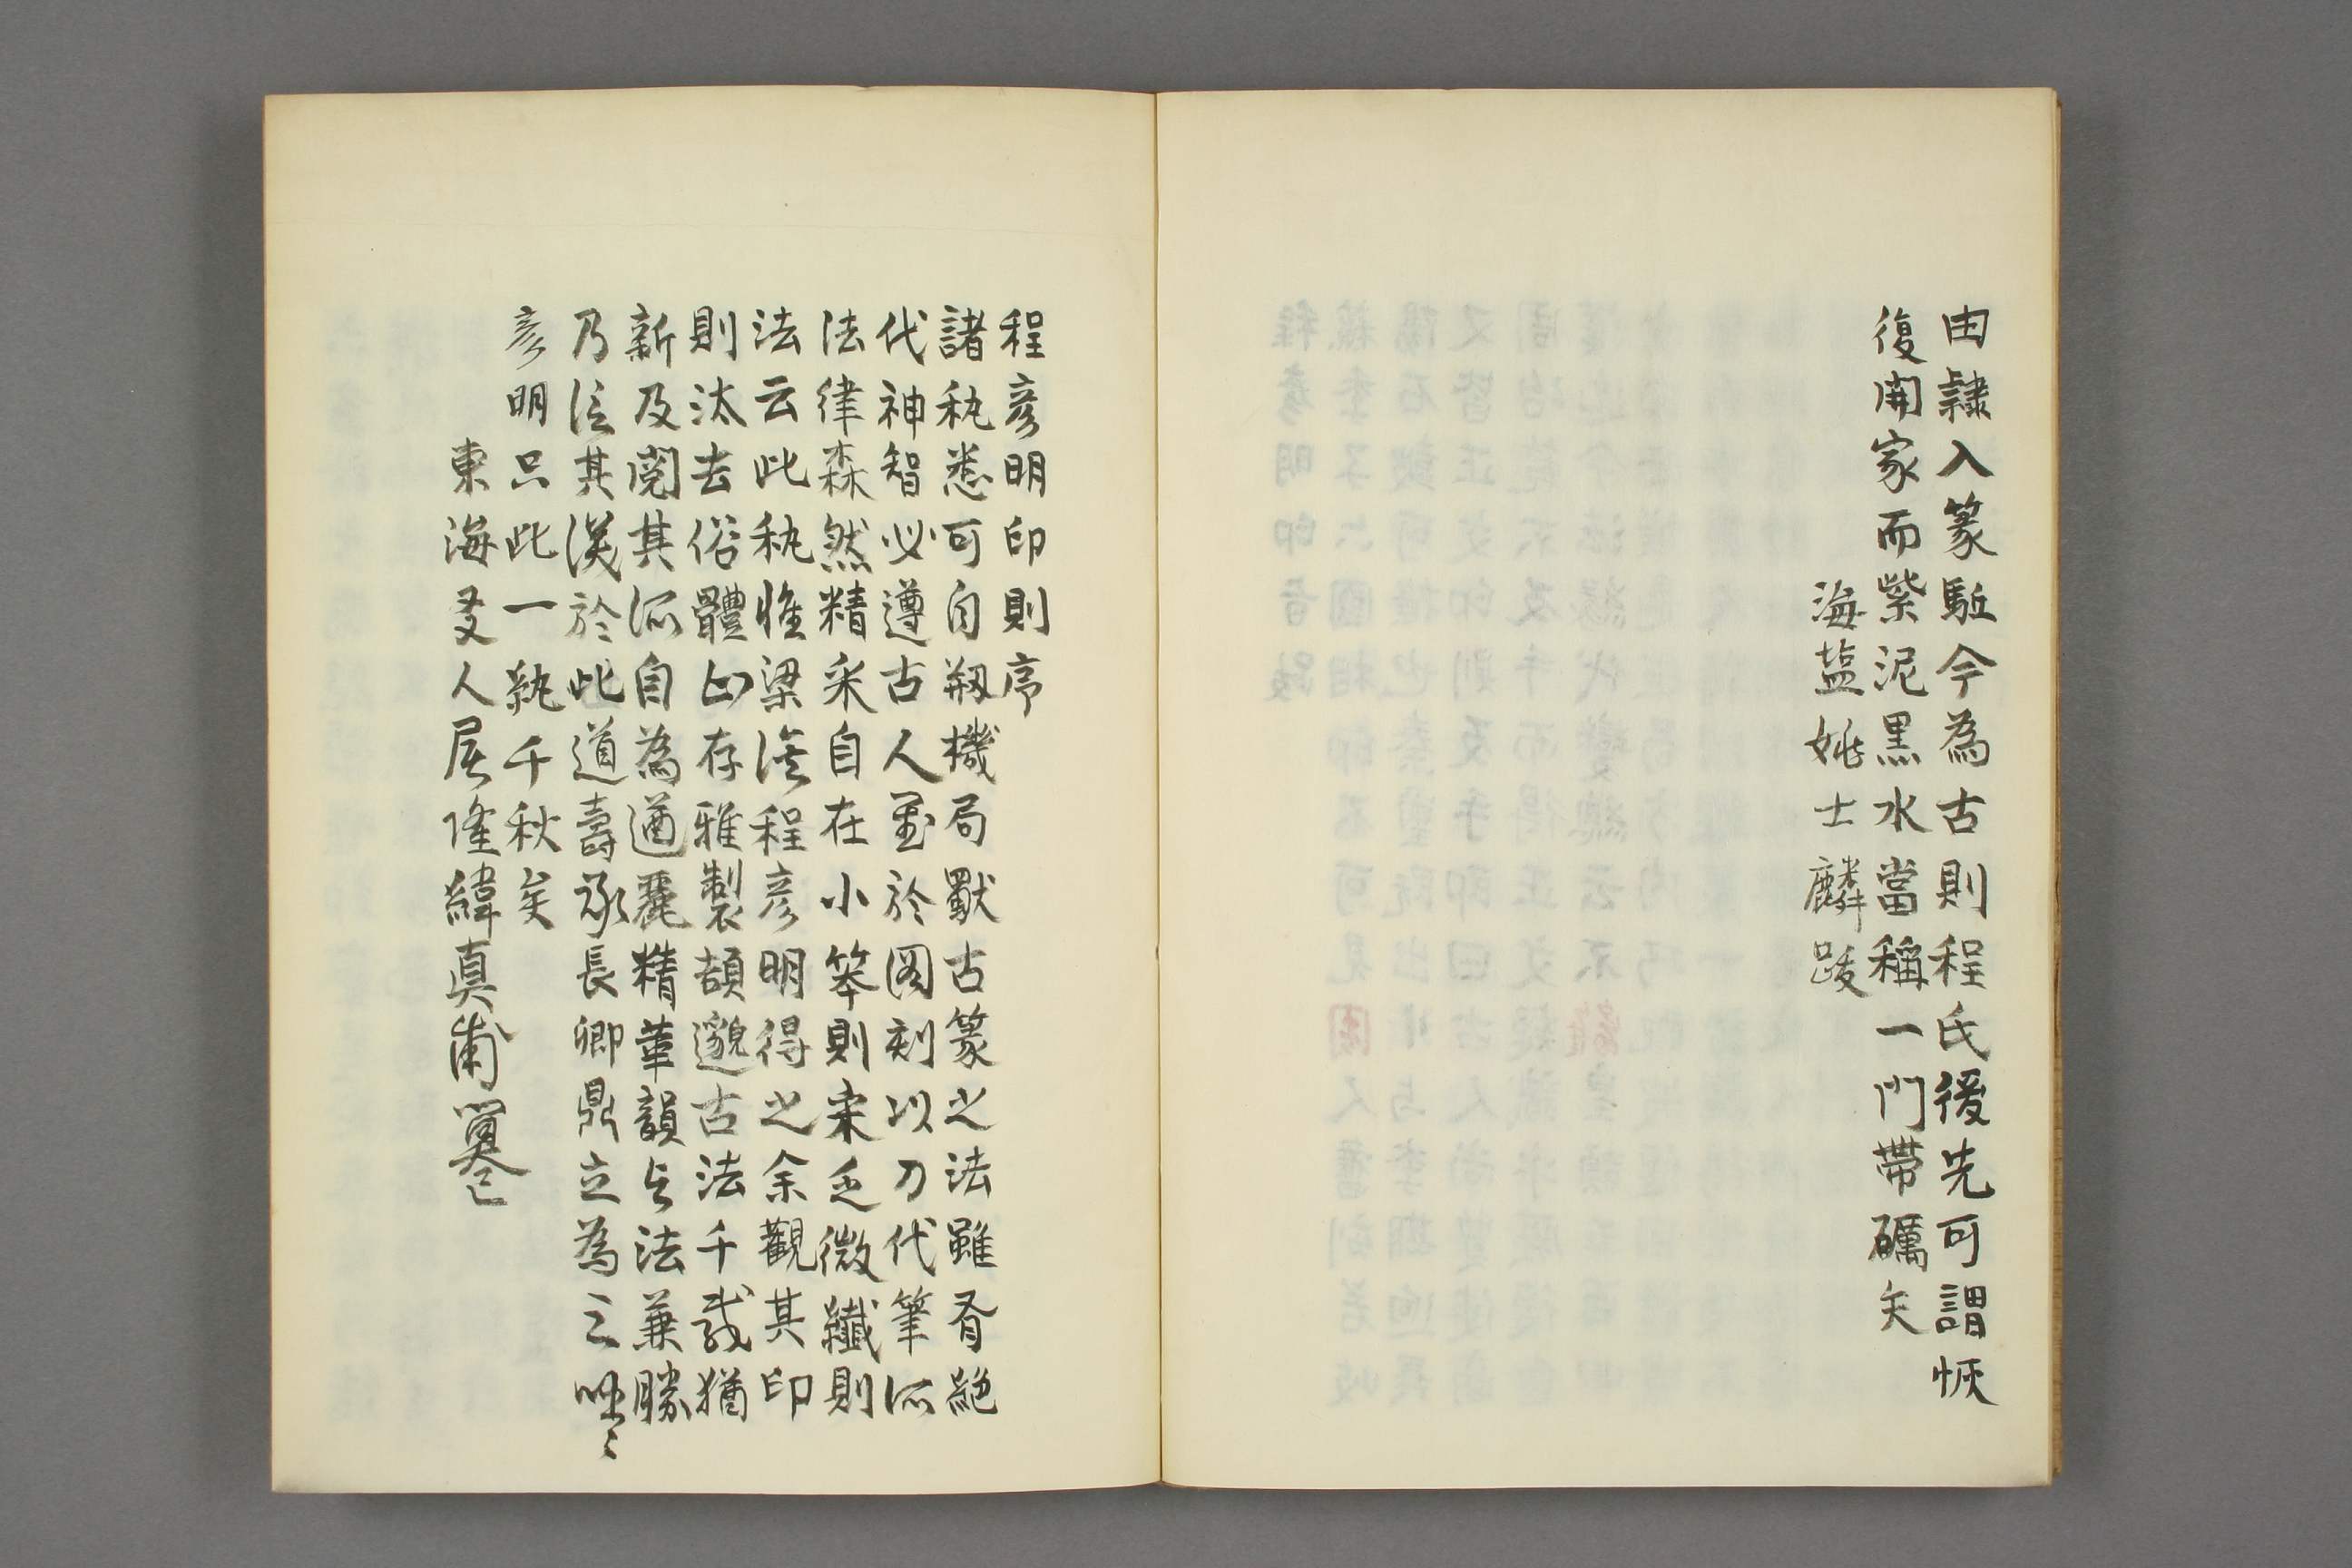 由隷入篆駈今為古則程氏後先可謂恢
復開家而紫泥黒水當稱一門帶礪矣
海盐姚士麟跋
程彦明印則序
諸秇悉可自剏機局獸古篆之法雖有絶
代神智必遵古人至於圖刻以刀代筆所
法律森然精采自在小笨則来乏微纖則
法云此秇惟梁溪程彦明得之余觀其印
則汰去俗體山存雅製頡邈古法千載猶
新及閲其所自為遒麗精華韻与法兼勝
乃信其深於此道壽承長卿鼎立為三噫〻
彦明只此一埶千秋矣
東海友人屠隆緯真甫篹